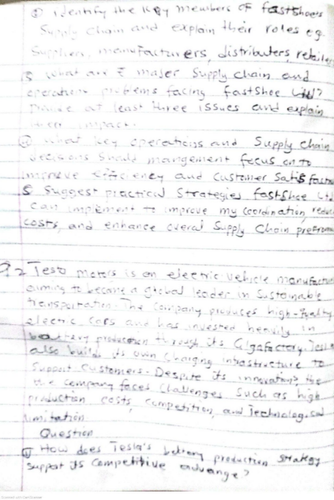 ① identify the key members of fastshoes
Supply chain and explain their roles e.g.
Suppliers, manufacturers, distributers, retailers
③ what are major Supply chain and
operation problems facing fastshoe Ltd?
provide at least three issues and explain
their impact.
④ what key operations and Supply chain
decisions should mangement focus on to
improve efficiency and customer satisfaction
⑤ Suggest practical Strategies fastshoe Ltd
can implement to improve coordination, reduce
costs, and enhance overall Supply Chain
Q.2 Tesla motors is an electric vehicle manufacturer
aiming to become a global leader in Sustainable
transportation. The company produces high-quality
electric cars and has invested heavily in
battery production through its Gigafactory. Tesla
also build its own charging infrastructure to
Support customers. Despite its innovations, the
company faced challenges such as high
production costs, competition, and Technological
limitation
Question
① How does Tesla's battery production strategy
support its competitive advantage?